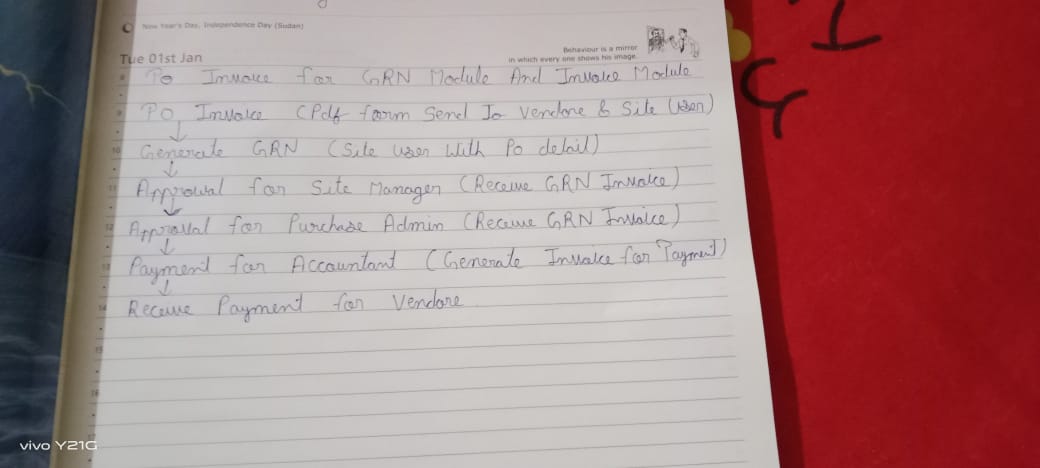 New Year's Day, Independence Day (Sudan)
Tue 01st Jan
Behaviour is a mirror
in which every one shows his image.
8 Po Invoice for GRN Module And Invoice Module
9 PO Invoice (Pdf form Send To Vendore & Site User)
↓
10 Generate GRN (Site user With Po detail)
↓
11 Approval for Site Manager (Receive GRN Invoice)
↓
12 Approval for Purchase Admin (Receive GRN Invoice)
↓
13 Payment for Accountant (Generate Invoice for Payment)
↓
14 Receive Payment for Vendore
15
16
vivo Y21G